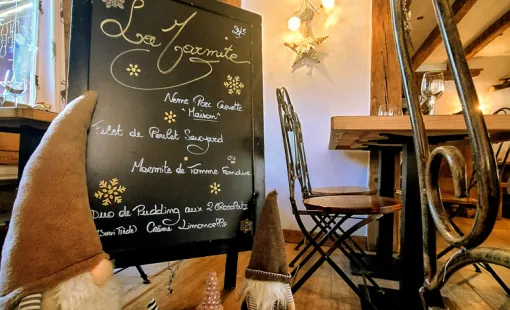 La Marmite
Nems Porc Carotte
"Maison"
Filet de Poulet Savoyard
Marmite de Tomme Fondue
Duo de Pudding aux 2 Chocolats
(Servi Tiède) Crème Limoncello